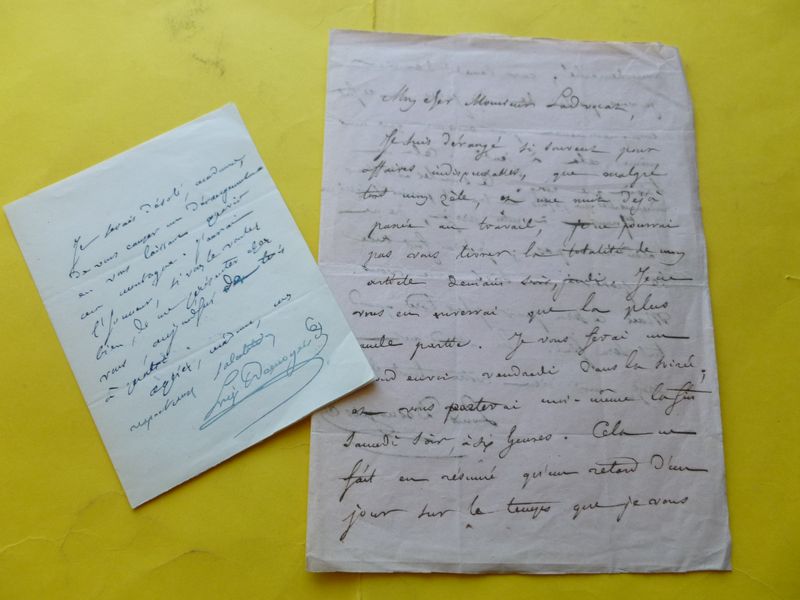 Je serais désolé, madame,
de vous causer un dérangement
en vous laissant
aux
l'honneur, si vous le voulez
bien, de me présenter chez
vous, aujourd'hui
à quatre
agréez, madame, mes
respectueuses salutations
Mon cher Monsieur Ladvocat,
Je suis dérangé si souvent pour
affaires indispensables, que malgré
tout mon zèle, et une nuit déjà
passée au travail, je ne pourrai
pas vous livrer la totalité de mon
article demain soir, jeudi. Je ne
vous en enverrai que la plus
partie. Je vous ferai un
envoi vendredi dans la soirée;
et vous porterai moi-même la fin
samedi soir, à six heures. Cela ne
fait en résumé qu'un retard d'un
jour sur le temps que je vous